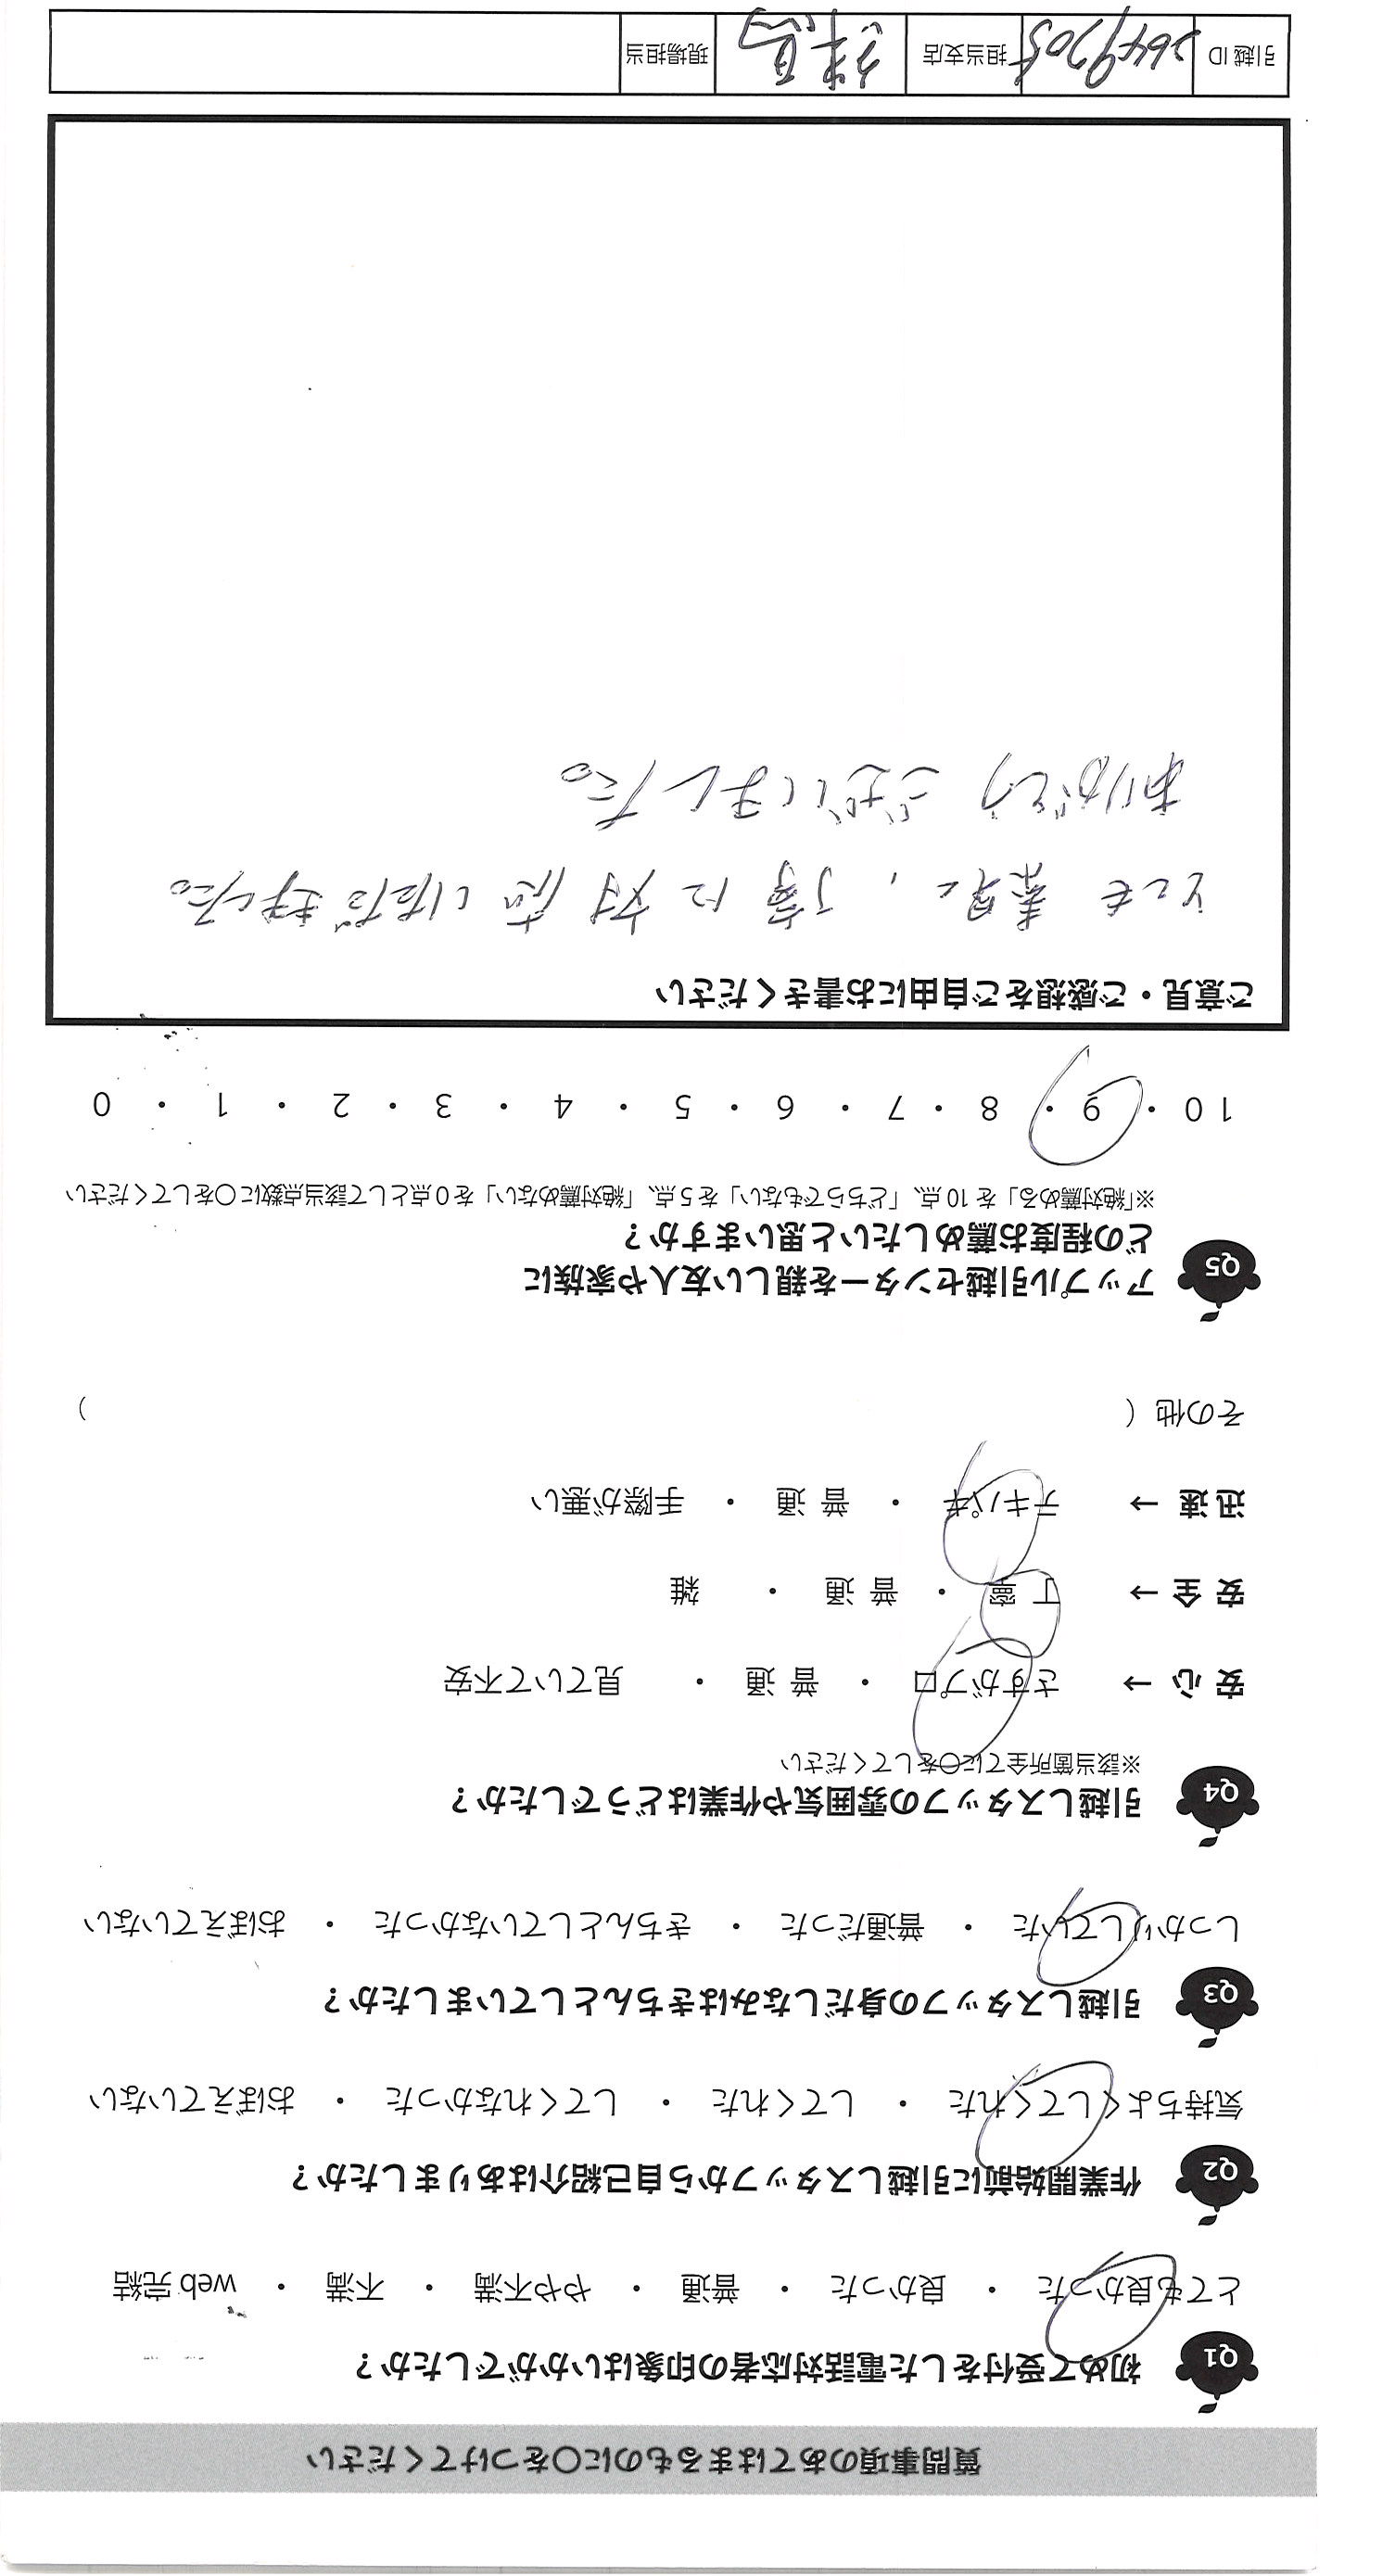 質問事項のあてはまるものに○をつけてください
Q1 初めて受付をした電話対応者の印象はいかがでしたか？
とても良かった ・ 良かった ・ 普通 ・ やや不満 ・ 不満 ・ web 完結
Q2 作業開始前に引越しスタッフから自己紹介はありましたか？
気持ちよくしてくれた ・ してくれた ・ してくれなかった ・ おぼえていない
Q3 引越しスタッフの身だしなみはきちんとしていましたか？
しっかりしていた ・ 普通だった ・ きちんとしていなかった ・ おぼえていない
Q4 引越しスタッフの雰囲気や作業はどうでしたか？
※該当箇所全てに○をしてください
安心 → さすがプロ ・ 普通 ・ 見ていて不安
安全 → 丁寧 ・ 普通 ・ 雑
迅速 → テキパキ ・ 普通 ・ 手際が悪い
その他（ ）
Q5 アップル引越センターを親しい友人や家族に
どの程度お薦めしたいと思いますか？
※「絶対薦める」を 10 点、「どちらでもない」を 5 点、「絶対薦めない」を 0 点として該当点数に○をしてください
10 ・ 9 ・ 8 ・ 7 ・ 6 ・ 5 ・ 4 ・ 3 ・ 2 ・ 1 ・ 0
ご意見・ご感想をご自由にお書きください
とても 素早く、丁寧に対応いただきました。
ありがとうございました。
引越 ID 2649705 担当支店 練馬 現場担当